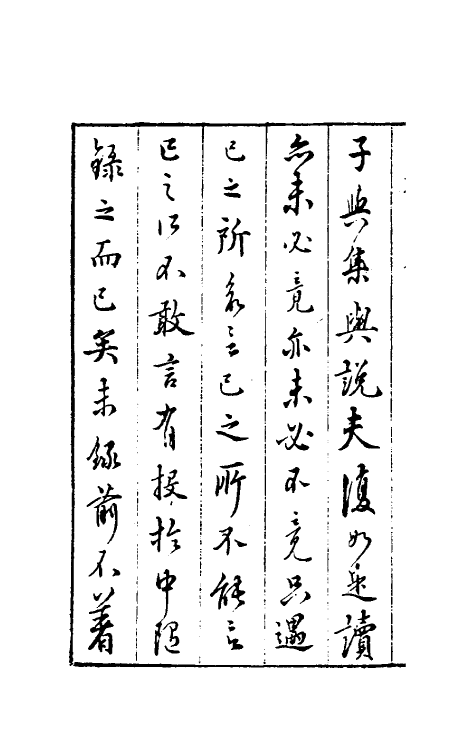 子與集與說夫復如是讀
亦未必竟亦未必不竟只遇
已之所欲言已之所不能言
已之所不敢言有投於中隨
錄之而已矣未錄前不著